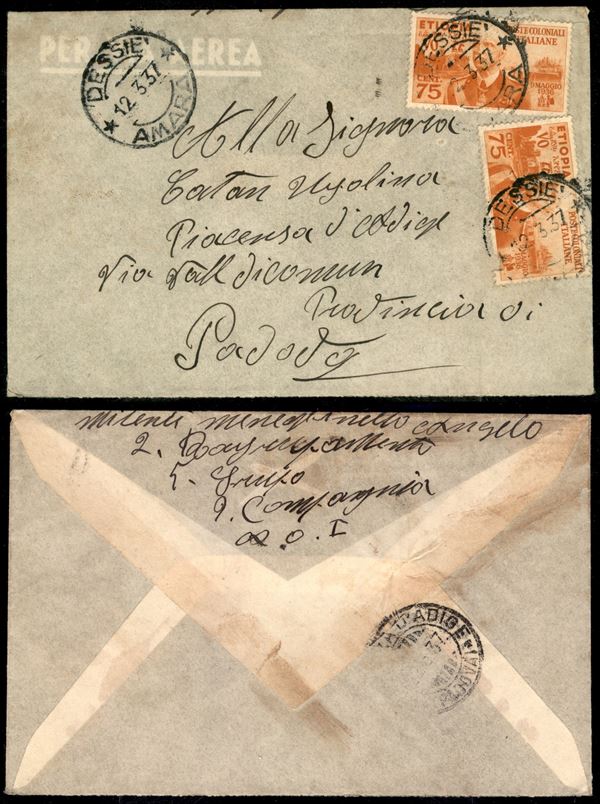 PER VIA AEREA
DESSIE'
12.3.37
AMARA
ETIOPIA
POSTE COLONIALI
ITALIANE
9 MAGGIO
1936
CENT. 75
DESSIE'
12.3.37
AMARA
ETIOPIA
CENT. 75
POSTE COLONIALI
ITALIANE
DESSIE'
12.3.37
Alla Signora
Catan Ugolina
Piacensa d'Adige
Via Valldicomun
Provincia di
Padova
Mitente Meneghinello Angelo
2. Raggruppamento
5. Grupo
9. Compagnia
A. O. I
A D'ADIGE
37